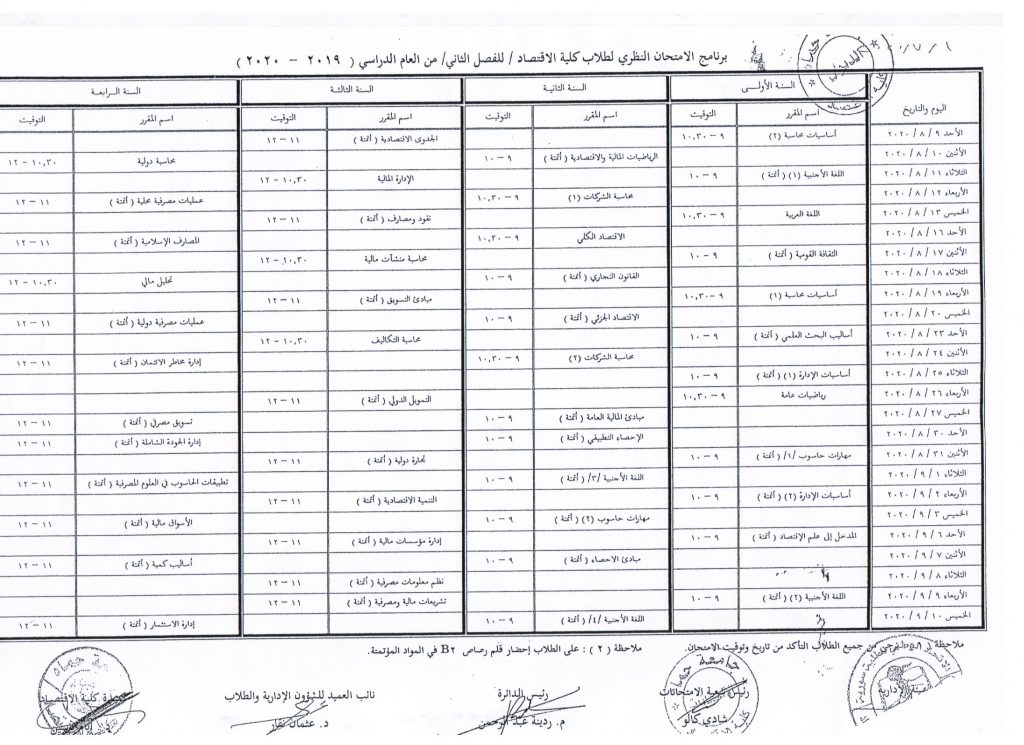 برنامج الامتحان النظري لطلاب كلية الاقتصاد / للفصل الثاني/ من العام الدراسي ( ٢٠١٩ – ٢٠٢٠ )
اليوم والتاريخ السنة الأولى السنة الثانية السنة الثالثة السنة الرابعة
اسم المقرر التوقيت اسم المقرر التوقيت اسم المقرر التوقيت اسم المقرر التوقيت
الأحد ٩ / ٨ / ٢٠٢٠ أساسيات محاسبة (٢) ٩ – ١٠,٣٠ الجدوى الاقتصادية ( أتمتة ) ١١ – ١٢
الأثنين ١٠ / ٨ / ٢٠٢٠ الرياضيات المالية والاقتصادية ( أتمتة ) ٩ – ١٠ محاسبة دولية ١٠,٣٠ – ١٢
الثلاثاء ١١ / ٨ / ٢٠٢٠ اللغة الأجنبية (١) ( أتمتة ) ٩ – ١٠ الإدارة المالية ١٠,٣٠ – ١٢
الأربعاء ١٢ / ٨ / ٢٠٢٠ محاسبة الشركات (١) ٩ – ١٠,٣٠ عمليات مصرفية محلية ( أتمتة ) ١١ – ١٢
الخميس ١٣ / ٨ / ٢٠٢٠ اللغة العربية ٩ – ١٠,٣٠ نقود ومصارف ( أتمتة ) ١١ – ١٢
الأحد ١٦ / ٨ / ٢٠٢٠ الاقتصاد الكلي ٩ – ١٠,٣٠ المصارف الإسلامية ( أتمتة ) ١١ – ١٢
الأثنين ١٧ / ٨ / ٢٠٢٠ الثقافة القومية ( أتمتة ) ٩ – ١٠ محاسبة منشآت مالية ١٠,٣٠ – ١٢
الثلاثاء ١٨ / ٨ / ٢٠٢٠ القانون التجاري ( أتمتة ) ٩ – ١٠ تحليل مالي ١٠,٣٠ – ١٢
الأربعاء ١٩ / ٨ / ٢٠٢٠ أساسيات محاسبة (١) ٩ – ١٠,٣٠ مبادئ التسويق ( أتمتة ) ١١ – ١٢
الخميس ٢٠ / ٨ / ٢٠٢٠ الاقتصاد الجزئي ( أتمتة ) ٩ – ١٠ عمليات مصرفية دولية ( أتمتة ) ١١ – ١٢
الأحد ٢٣ / ٨ / ٢٠٢٠ أساليب البحث العلمي ( أتمتة ) ٩ – ١٠ محاسبة التكاليف ١٠,٣٠ – ١٢
الأثنين ٢٤ / ٨ / ٢٠٢٠ محاسبة الشركات (٢) ٩ – ١٠,٣٠ إدارة مخاطر الائتمان ( أتمتة ) ١١ – ١٢
الثلاثاء ٢٥ / ٨ / ٢٠٢٠ أساسيات الإدارة (١) ( أتمتة ) ٩ – ١٠
الأربعاء ٢٦ / ٨ / ٢٠٢٠ رياضيات عامة ٩ – ١٠,٣٠ التمويل الدولي ( أتمتة ) ١١ – ١٢
الخميس ٢٧ / ٨ / ٢٠٢٠ مبادئ المالية العامة ( أتمتة ) ٩ – ١٠ تسويق مصرفي ( أتمتة ) ١١ – ١٢
الأحد ٣٠ / ٨ / ٢٠٢٠ الإحصاء التطبيقي ( أتمتة ) ٩ – ١٠ إدارة الجودة الشاملة ( أتمتة ) ١١ – ١٢
الأثنين ٣١ / ٨ / ٢٠٢٠ مهارات حاسوب /١/ ( أتمتة ) ٩ – ١٠ تجارة دولية ( أتمتة ) ١١ – ١٢
الثلاثاء ١ / ٩ / ٢٠٢٠ اللغة الأجنبية /٣/ ( أتمتة ) ٩ – ١٠ تطبيقات الحاسوب في العلوم المصرفية ( أتمتة ) ١١ – ١٢
الأربعاء ٢ / ٩ / ٢٠٢٠ أساسيات الإدارة (٢) ( أتمتة ) ٩ – ١٠ التنمية الاقتصادية ( أتمتة ) ١١ – ١٢
الخميس ٣ / ٩ / ٢٠٢٠ مهارات حاسوب (٢) ( أتمتة ) ٩ – ١٠ الأسواق مالية ( أتمتة ) ١١ – ١٢
الأحد ٦ / ٩ / ٢٠٢٠ المدخل إلى علم الإقتصاد ( أتمتة ) ٩ – ١٠ إدارة مؤسسات مالية ( أتمتة ) ١١ – ١٢
الأثنين ٧ / ٩ / ٢٠٢٠ مبادئ الاحصاء ( أتمتة ) ٩ – ١٠ أساليب كمية ( أتمتة ) ١١ – ١٢
الثلاثاء ٨ / ٩ / ٢٠٢٠ نظم معلومات مصرفية ( أتمتة ) ١١ – ١٢
الأربعاء ٩ / ٩ / ٢٠٢٠ اللغة الأجنبية (٢) ( أتمتة ) ٩ – ١٠ تشريعات مالية ومصرفية ( أتمتة ) ١١ – ١٢
الخميس ١٠ / ٩ / ٢٠٢٠ اللغة الأجنبية /٤/ ( أتمتة ) ٩ – ١٠ إدارة الاستثمار ( أتمتة ) ١١ – ١٢
ملاحظة من جميع الطلاب التأكد من تاريخ وتوقيت الامتحان. ملاحظة ( ٢ ) : على الطلاب إحضار قلم رصاص B٢ في المواد المؤتمتة.
رئيس شعبة الامتحانات رئيس الدائرة نائب العميد للشؤون الإدارية والطلاب كلية الاقتصاد
شادي كالو م. ردينة عبد الرحمن د. عثمان نقار